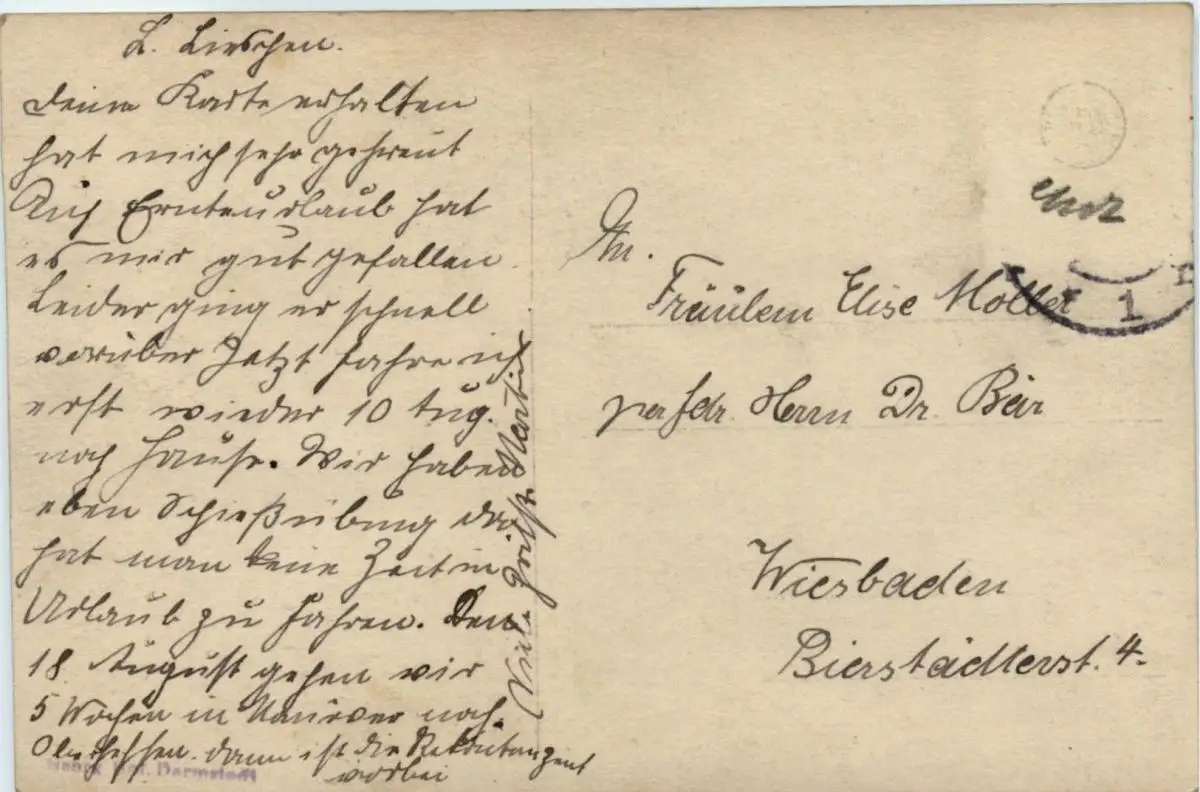 L. Lieschen.
deine Karte erhalten
hat mich sehr gefreut
Auf Ernteurlaub hat
es mir gut gefallen.
Leider ging er schnell
vorüber Jetzt fahre ich
erst wieder 10 Aug.
nach Hause. Wir haben
eben Schießübung da
hat man keine Zeit in
Urlaub zu fahren. Den
18 August gehen wir
5 Wochen in Manöver nach
Oberhessen. dann ist die Rekrutenzeit
vorbei
Viele Grüße Martin
An.
Fräulein Elise Moller
per Adr. Herrn Dr. Beir
Wiesbaden
Bierstädterst. 4.
1
Darmstadt